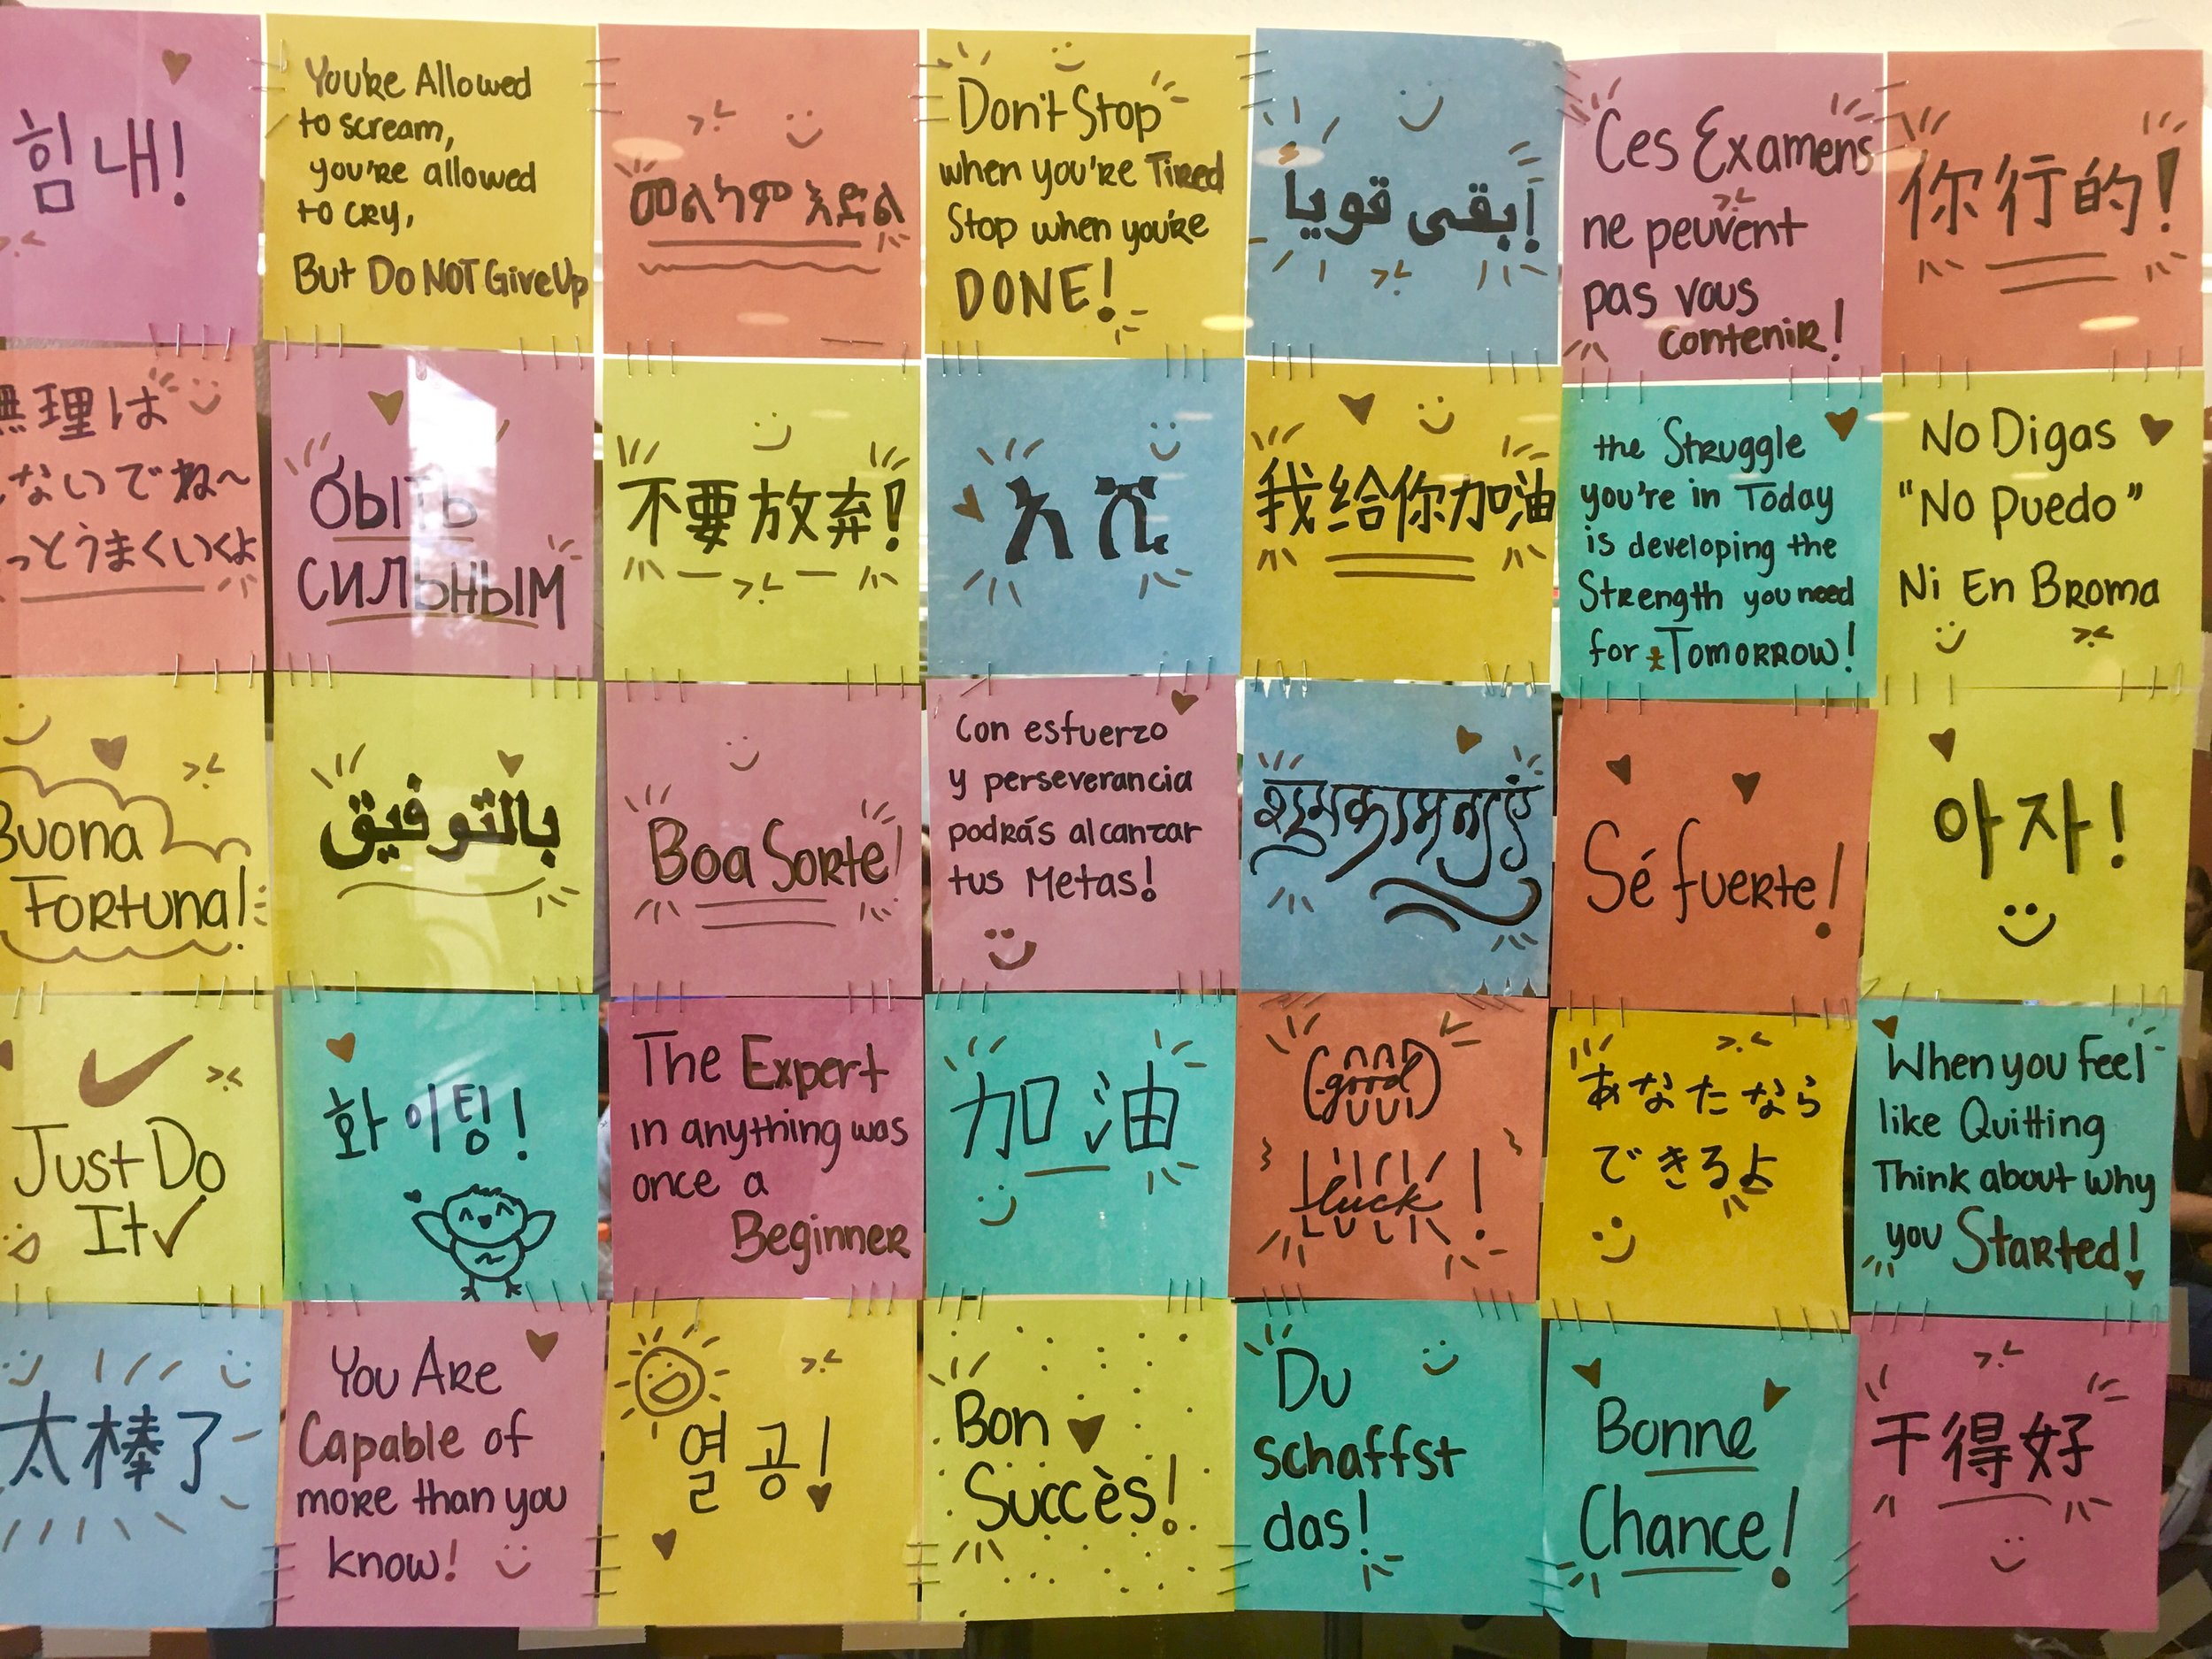 힘내!
You're Allowed
to scream,
you're allowed
to cry,
But Do NOT Give Up
መልካም እድል
Don't Stop
when you're Tired
Stop when you're
DONE!
إبقى قويا
Ces Examens
ne peuvent
pas vous
contenir!
你行的!
無理は
ないでね〜
っとうまくいくよ
быть
сильным
不要放弃!
አሺ
我给你加油
the Struggle
you're in Today
is developing the
Strength you need
for Tomorrow!
No Digas
"No Puedo"
Ni En Broma
Buona
Fortuna!
بالتوفيق
Boa Sorte!
Con esfuerzo
y perseverancia
podrás alcanzar
tus Metas!
शुभकामनाएँ
Sé fuerte!
아자!
Just Do
It
화이팅!
The Expert
in anything was
once a
Beginner
加油
good
luck!
あなたなら
できるよ
When you feel
like Quitting
Think about why
you Started!
太棒了
You Are
Capable of
more than you
know!
열공!
Bon
Succès!
Du
schaffst
das!
Bonne
Chance!
干得好